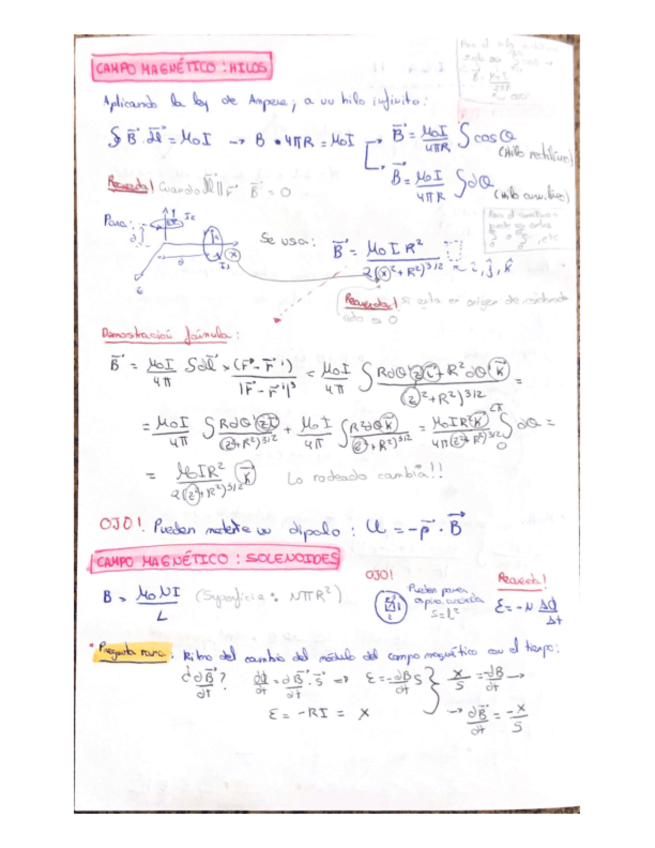 CAMPO MAGNÉTICO : HILOS
Para el hilo
Aplicando la ley de Ampere, a un hilo infinito:
∮ B⃗ · dl⃗ = μ₀I → B · 4πR = μ₀I → B⃗ = μ₀I/4πR ∫ cosθ (Hilo rectilíneo)
B⃗ = μ₀I/4πR ∫ dθ
Recuerda! Cuando dl⃗ || r⃗ B⃗ = 0
Para: I₂ I₁ x
Se usa: B⃗ = μ₀ I R² / 2(x²+R²)^3/2 î, ĵ, k̂
Recuerda! Si esta en origen de coordenadas
Demostración fórmula:
B⃗ = μ₀I/4π ∫ dl⃗ × (r⃗ - r⃗')/|r⃗ - r⃗'|³ = μ₀I/4π ∫ (Rdθ z i⃗ + R²dθ k⃗)/(z²+R²)^3/2 =
= μ₀I/4π ∫ Rdθ z i⃗/(z²+R²)^3/2 + μ₀I/4π ∫ R²dθ k⃗/(z²+R²)^3/2 = μ₀IR² k⃗/4π(z²+R²)^3/2 ∫₀^2π dθ =
= μ₀IR²/2(z²+R²)^3/2 k⃗ Lo rodeado cambia!!
OJO!. Pueden meterte un dipolo : U = -p⃗ · B⃗
CAMPO MAGNÉTICO : SOLENOIDES
B = μ₀NI/L (Superficie: NπR²)
OJO! Pueden poner espira cuadrada S=l²
Recuerda! ε = -N ΔΦ/Δt
* Pregunta rara: Ritmo del cambio del módulo del campo magnético con el tiempo:
¿dB⃗/dt? dΦ/dt = dB⃗/dt · s⃗ ⇒ ε = -dB/dt S } x/S = -dB/dt →
ε = -RI = x → dB⃗/dt = -x/S